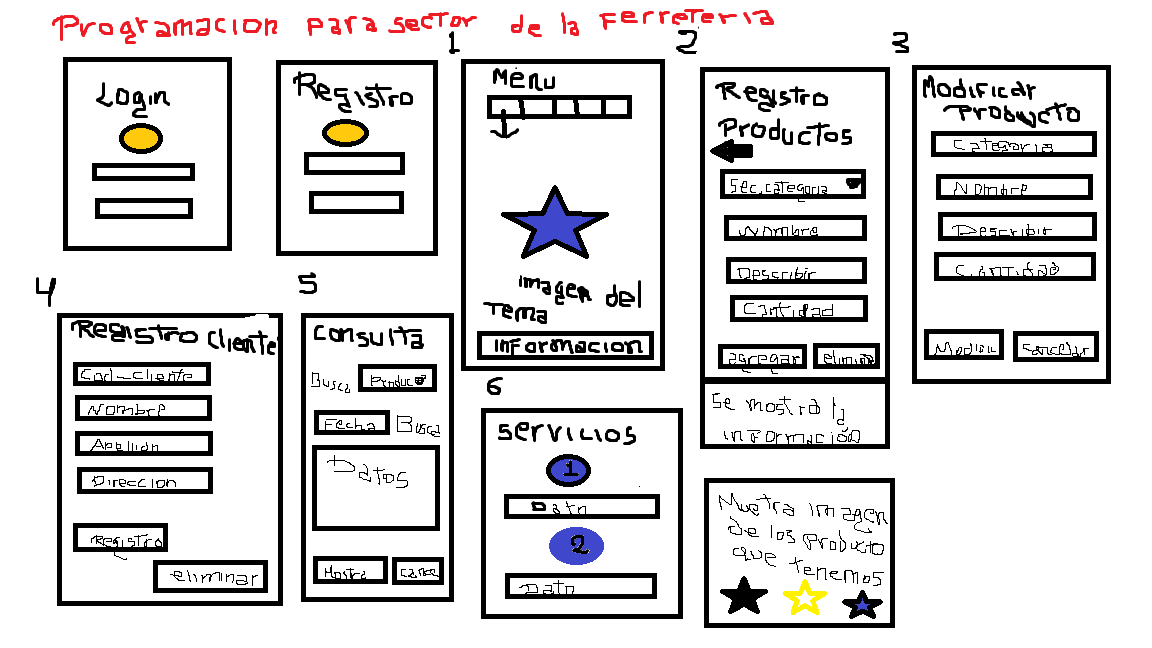 Programacion para sector de la Ferreteria
Login
Registro
1
Menu
imagen del
Tema
informacion
2
Registro
Productos
Sec.categoria
Nombre
Describir
Cantidad
agregar
Se mostra la
información
3
Modificar
Producto
Categoria
Nombre
Describir
Cantidad
Cancelar
4
Registro Cliente
Cod-cliente
Nombre
Direccion
Registro
eliminar
5
Consulta
Busca
Fecha Busca
Datos
Mostra
6
Servicios
1
2
Muestra imagen
de los producto
que tenemos